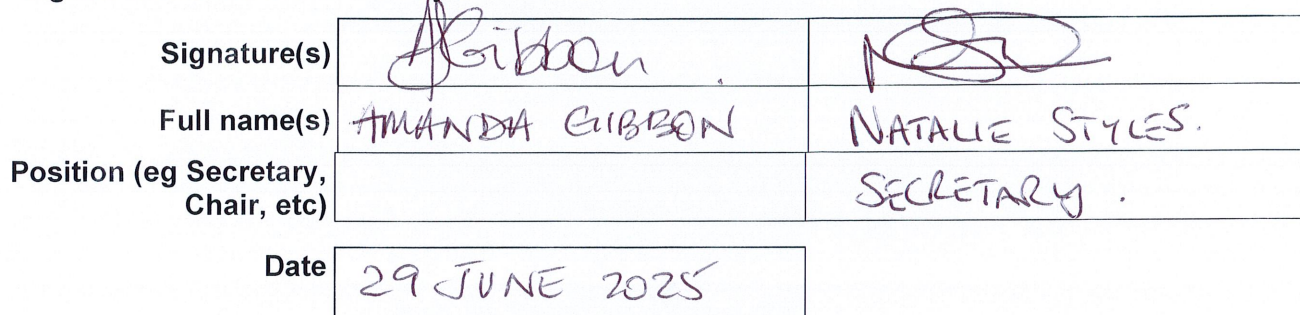 Signature(s) AGibbon
Full name(s) AMANDA GIBBON NATALIE STYLES.
Position (eg Secretary, SECRETARY.
Chair, etc)
Date 29 JUNE 2025